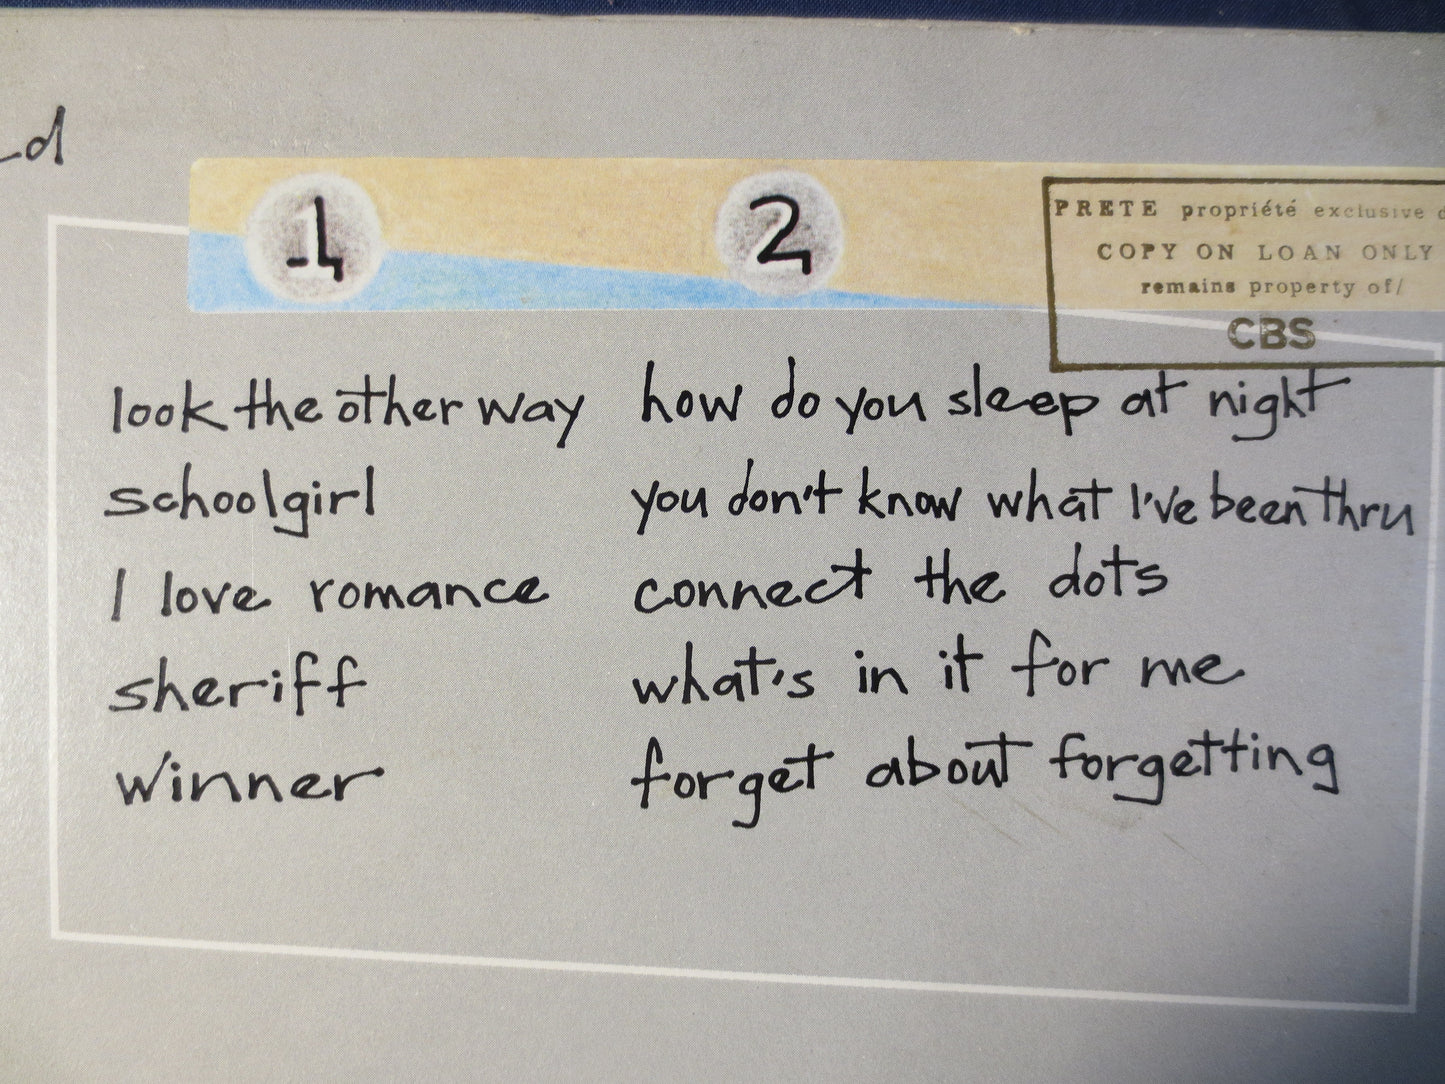 d
1
2
PRETE propriété exclusive
COPY ON LOAN ONLY
remains property of/
CBS
look the other way
schoolgirl
I love romance
sheriff
winner
how do you sleep at night
you don't know what I've been thru
connect the dots
what's in it for me
forget about forgetting